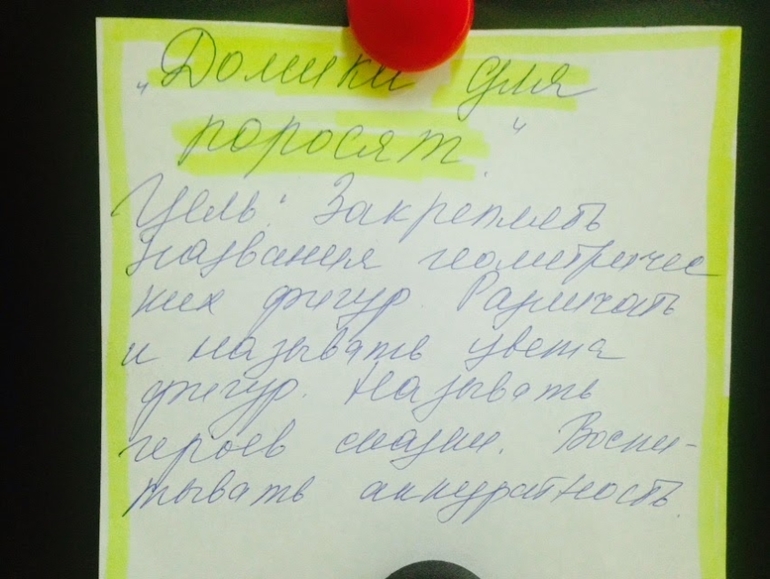 "Домики для
поросят."
Цель: Закреплять
названия геометричес
ких фигур Различать
и называть цвета
фигур. Называть
героев сказки. Воспи-
тывать аккуратность.